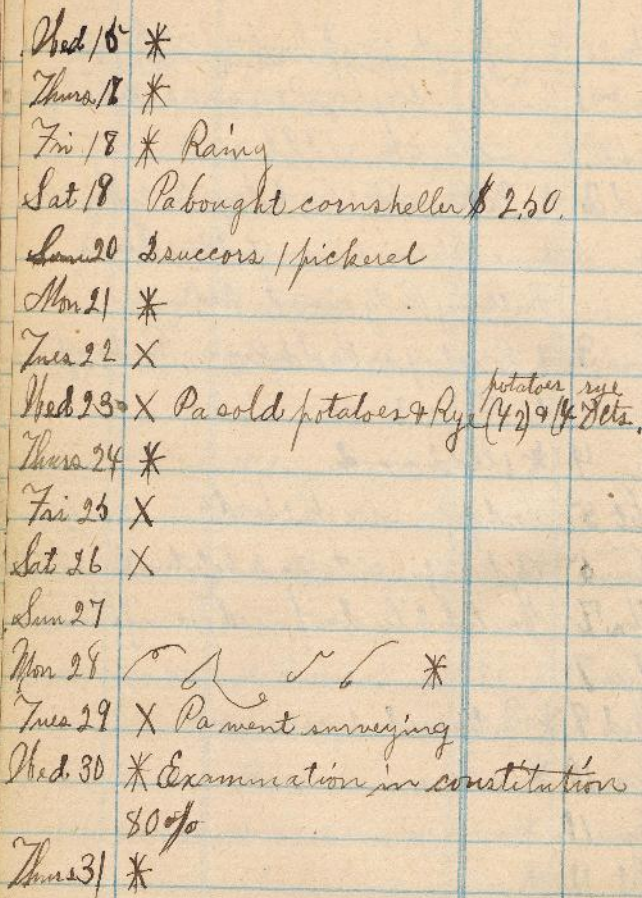 Wed 15 *
Thurs 17 *
Fri 18 * Rainy
Sat 19 Pa bought cornsheller $ 2.50.
Sun 20 2 succors 1 pickerel
Mon 21 *
Tues 22 X
potatoes rye
Wed 23 X Pa sold potatoes & Rye (42) & (47 cts.
Thurs 24 *
Fri 25 X
Sat 26 X
Sun 27
Mon 28 *
Tues 29 X Pa went surveying
Wed. 30 * Examination in constitution
80%
Thurs 31 *